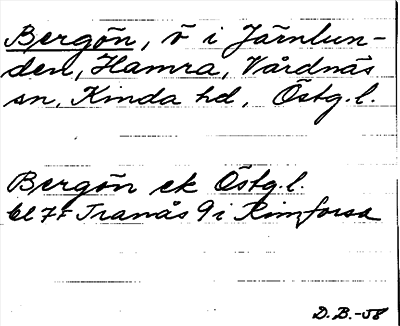 Bergön, ö i Järnlun-
den, Hamra, Vårdnäs
sn, Kinda hd, Östg.l.
Bergön ek Östg.l.
bl 7F Tranås 9 i Rimforsa
D.B.-58